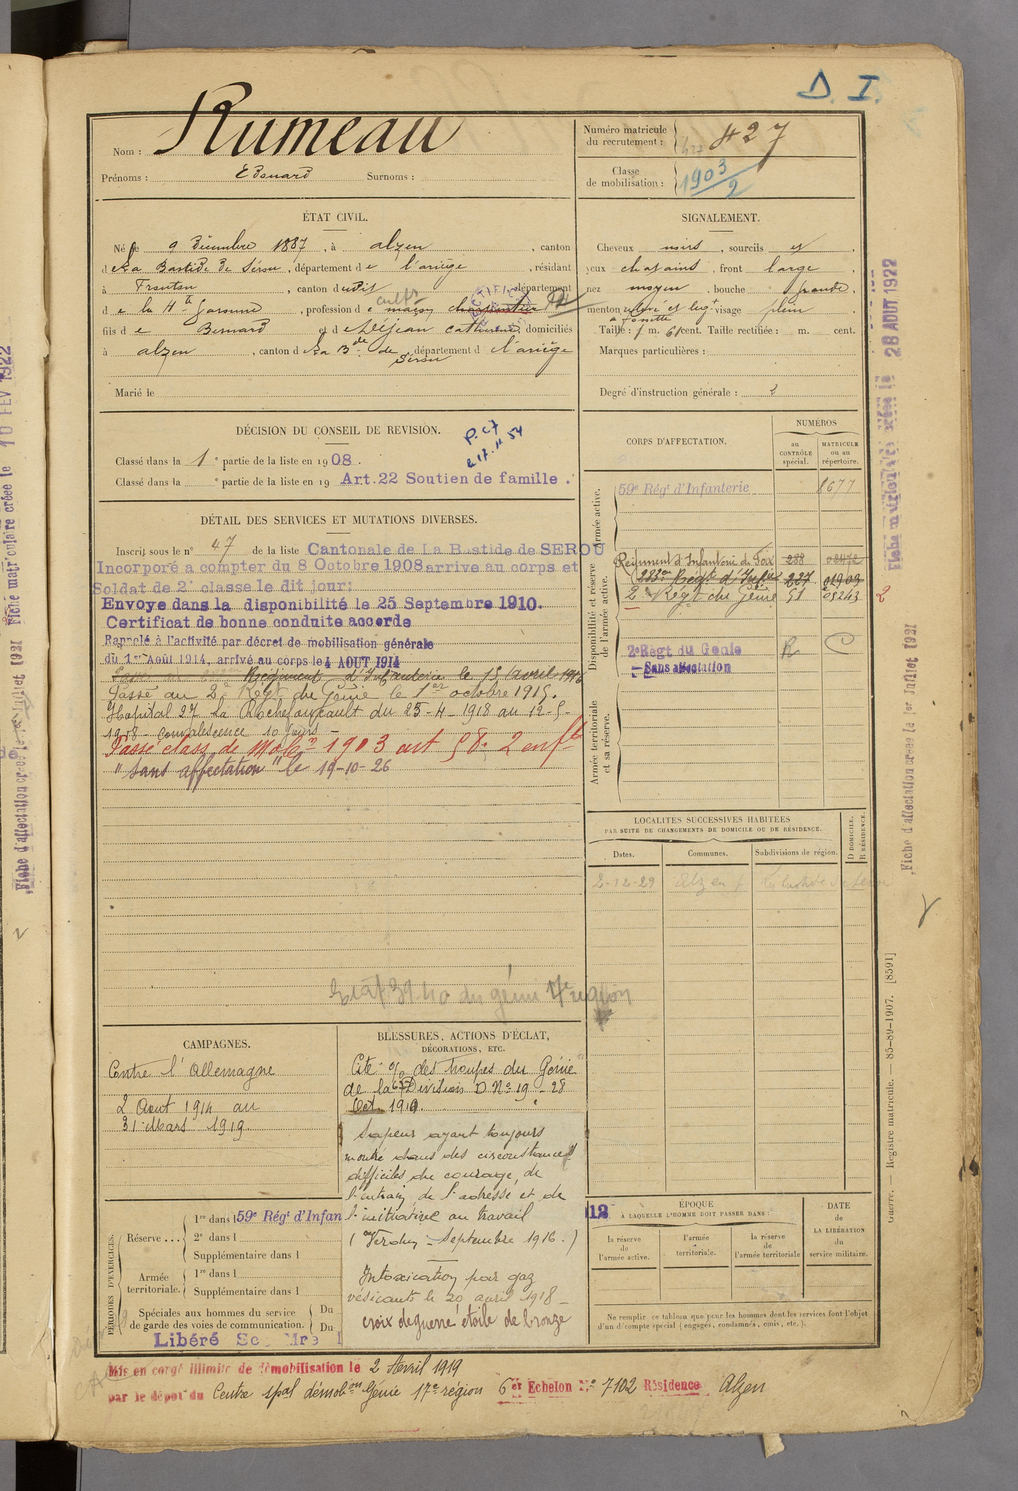 D. I.
Nom : Rumeau
Prénoms : Edouard Surnoms :
Numéro matricule du recrutement : 427
Classe de mobilisation : 1903/2
ÉTAT CIVIL.
Né le 9 décembre 1887, à Alzen, canton
de La Bastide de Sérou, département de l'Ariège, résidant
à Fronton, canton dudit, département
de la Hte Garonne, profession de maçon cultr
fils de Bernard et de Déjean Catherine, domiciliés
à Alzen, canton de La Bde de Sérou, département de l'Ariège
Marié le
SIGNALEMENT.
Cheveux noirs, sourcils id,
yeux chatains, front large,
nez moyen, bouche grande,
menton visage plein
à fossette
Taille : 1 m. 61 cent. Taille rectifiée : m. cent.
Marques particulières :
Degré d'instruction générale : 2
DÉCISION DU CONSEIL DE REVISION.
Classé dans la 1e partie de la liste en 1908.
Classé dans la e partie de la liste en 19 Art.22 Soutien de famille.
DÉTAIL DES SERVICES ET MUTATIONS DIVERSES.
Inscrit sous le n° 47 de la liste Cantonale de La Bastide de SEROU
Incorporé a compter du 8 Octobre 1908 arrive au corps et
Soldat de 2e classe le dit jour;
Envoye dans la disponibilité le 25 Septembre 1910.
Certificat de bonne conduite accorde
Rappelé à l'activité par décret de mobilisation générale
du 1er Août 1914, arrivé au corps le 4 AOUT 1914
Régiment d'Infanterie le 15 avril 1916
Passé au 2e Régt du Génie le 1er octobre 1915.
Hopital 27 La Rochefoucault du 25-4-1918 au 12-5-
1918 - Convalescence 10 jours -
Passé class. de Mobon 1903 art 58. 2 enfts
"Sans affectation" le 19-10-26
du génie 17e région
CORPS D'AFFECTATION.
NUMÉROS
au CONTRÔLE spécial.
MATRICULE ou au répertoire.
Armée active.
59e Régt d'Infanterie 8677
Disponibilité et réserve de l'armée active.
Régiment d'Infanterie de Foix 288
Régt d'Infie 237
2e Régt du Génie 51 05243
2e Régt du Genie R
Sans affectation
Armée territoriale et sa réserve.
LOCALITÉS SUCCESSIVES HABITÉES
PAR SUITE DE CHANGEMENTS DE DOMICILE OU DE RÉSIDENCE.
Dates. Communes. Subdivisions de région. D DOMICILE. R RÉSIDENCE.
2-12-29 Alzen
CAMPAGNES.
Contre l'Allemagne
2 Aout 1914 au
31 Mars 1919
BLESSURES, ACTIONS D'ÉCLAT,
DÉCORATIONS, ETC.
Cité o/o des troupes du Génie
de la 67e Division O. No 19 - 28
Oct. 1919.
Sapeur ayant toujours
montré dans des circonstances
difficiles du courage, de
l'entrain, de l'adresse et de
l'initiative au travail
(Verdun - Septembre 1916.)
Intoxication par gaz
vésicants le 20 avril 1918 -
croix de guerre étoile de bronze
PÉRIODES D'EXERCICES.
Réserve...
1re dans l 59e Régt d'Infan
2e dans l
Supplémentaire dans l
Armée territoriale.
1re dans l
Supplémentaire dans l
Spéciales aux hommes du service de garde des voies de communication. Du Du
Libéré
12
ÉPOQUE
À LAQUELLE L'HOMME DOIT PASSER DANS :
la réserve de l'armée active.
l'armée territoriale.
la réserve de l'armée territoriale
DATE de LA LIBÉRATION du service militaire.
Ne remplir ce tableau que pour les hommes dont les services font l'objet
d'un décompte spécial (engagés, condamnés, omis, etc.).
Mis en congé illimité de démobilisation le 2 Avril 1919
par le dépôt du Centre spal démobon Génie 17e région 6er Echelon No 7102 Résidence Alzen
Fiche matriculaire créée le 28 AOUT 1922
Fiche d'affectation créée le 1er Juillet 1921
Guerre. — Registre matricule. — 85-89-1907. [8591]
Fiche matriculaire créée le 10 FEV 1922
Fiche d'affectation créée le 1er Juillet 1921